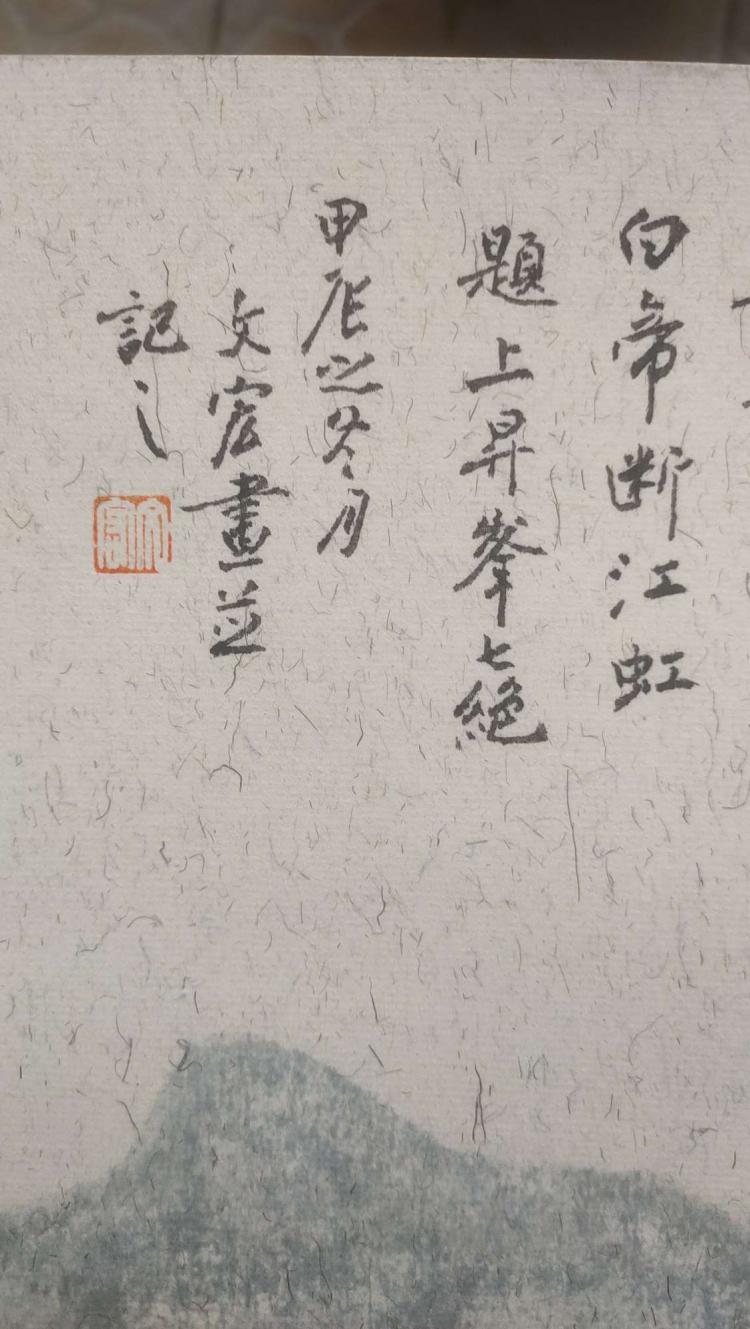 白帝断江虹
題上昇峯七絶
甲辰之冬月
文宏畫並
記之